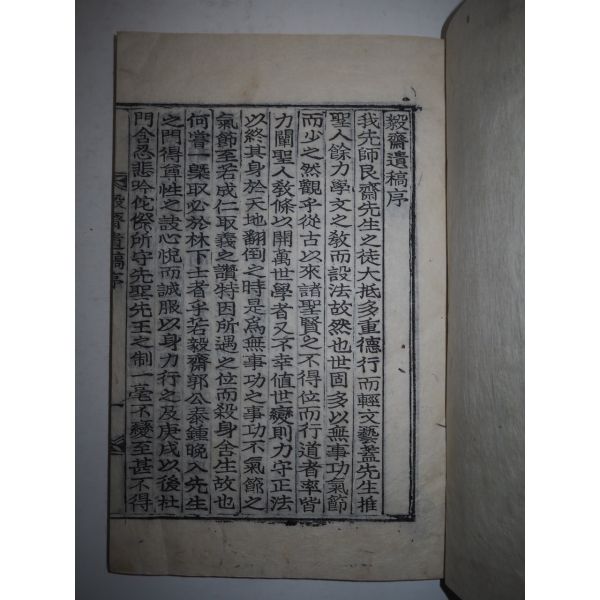 毅齋遺稿序
我先師艮齋先生之徒大抵多重德行而輕文藝蓋先生推
聖人餘力學文之敎而設法故然也世固多以無事功氣節
而少之然觀乎從古以來諸聖賢之不得位而行道者率皆
力闡聖人敎條以開萬世學者又不幸値世變則力守正法
以終其身於天地翻倒之時是爲無事功之事功不氣節之
氣節至若成仁取義之讚特因所遇之位而殺身舍生故也
何嘗一槩取必於林下士者乎若毅齋郭公泰鍾晩入先生
之門得尊性之訣心悅而誠服以身力行之及庚戌以後杜
門含忍悲吟侘傺所守先聖先王之制一毫不變至甚不得
毅齋遺稿序
一